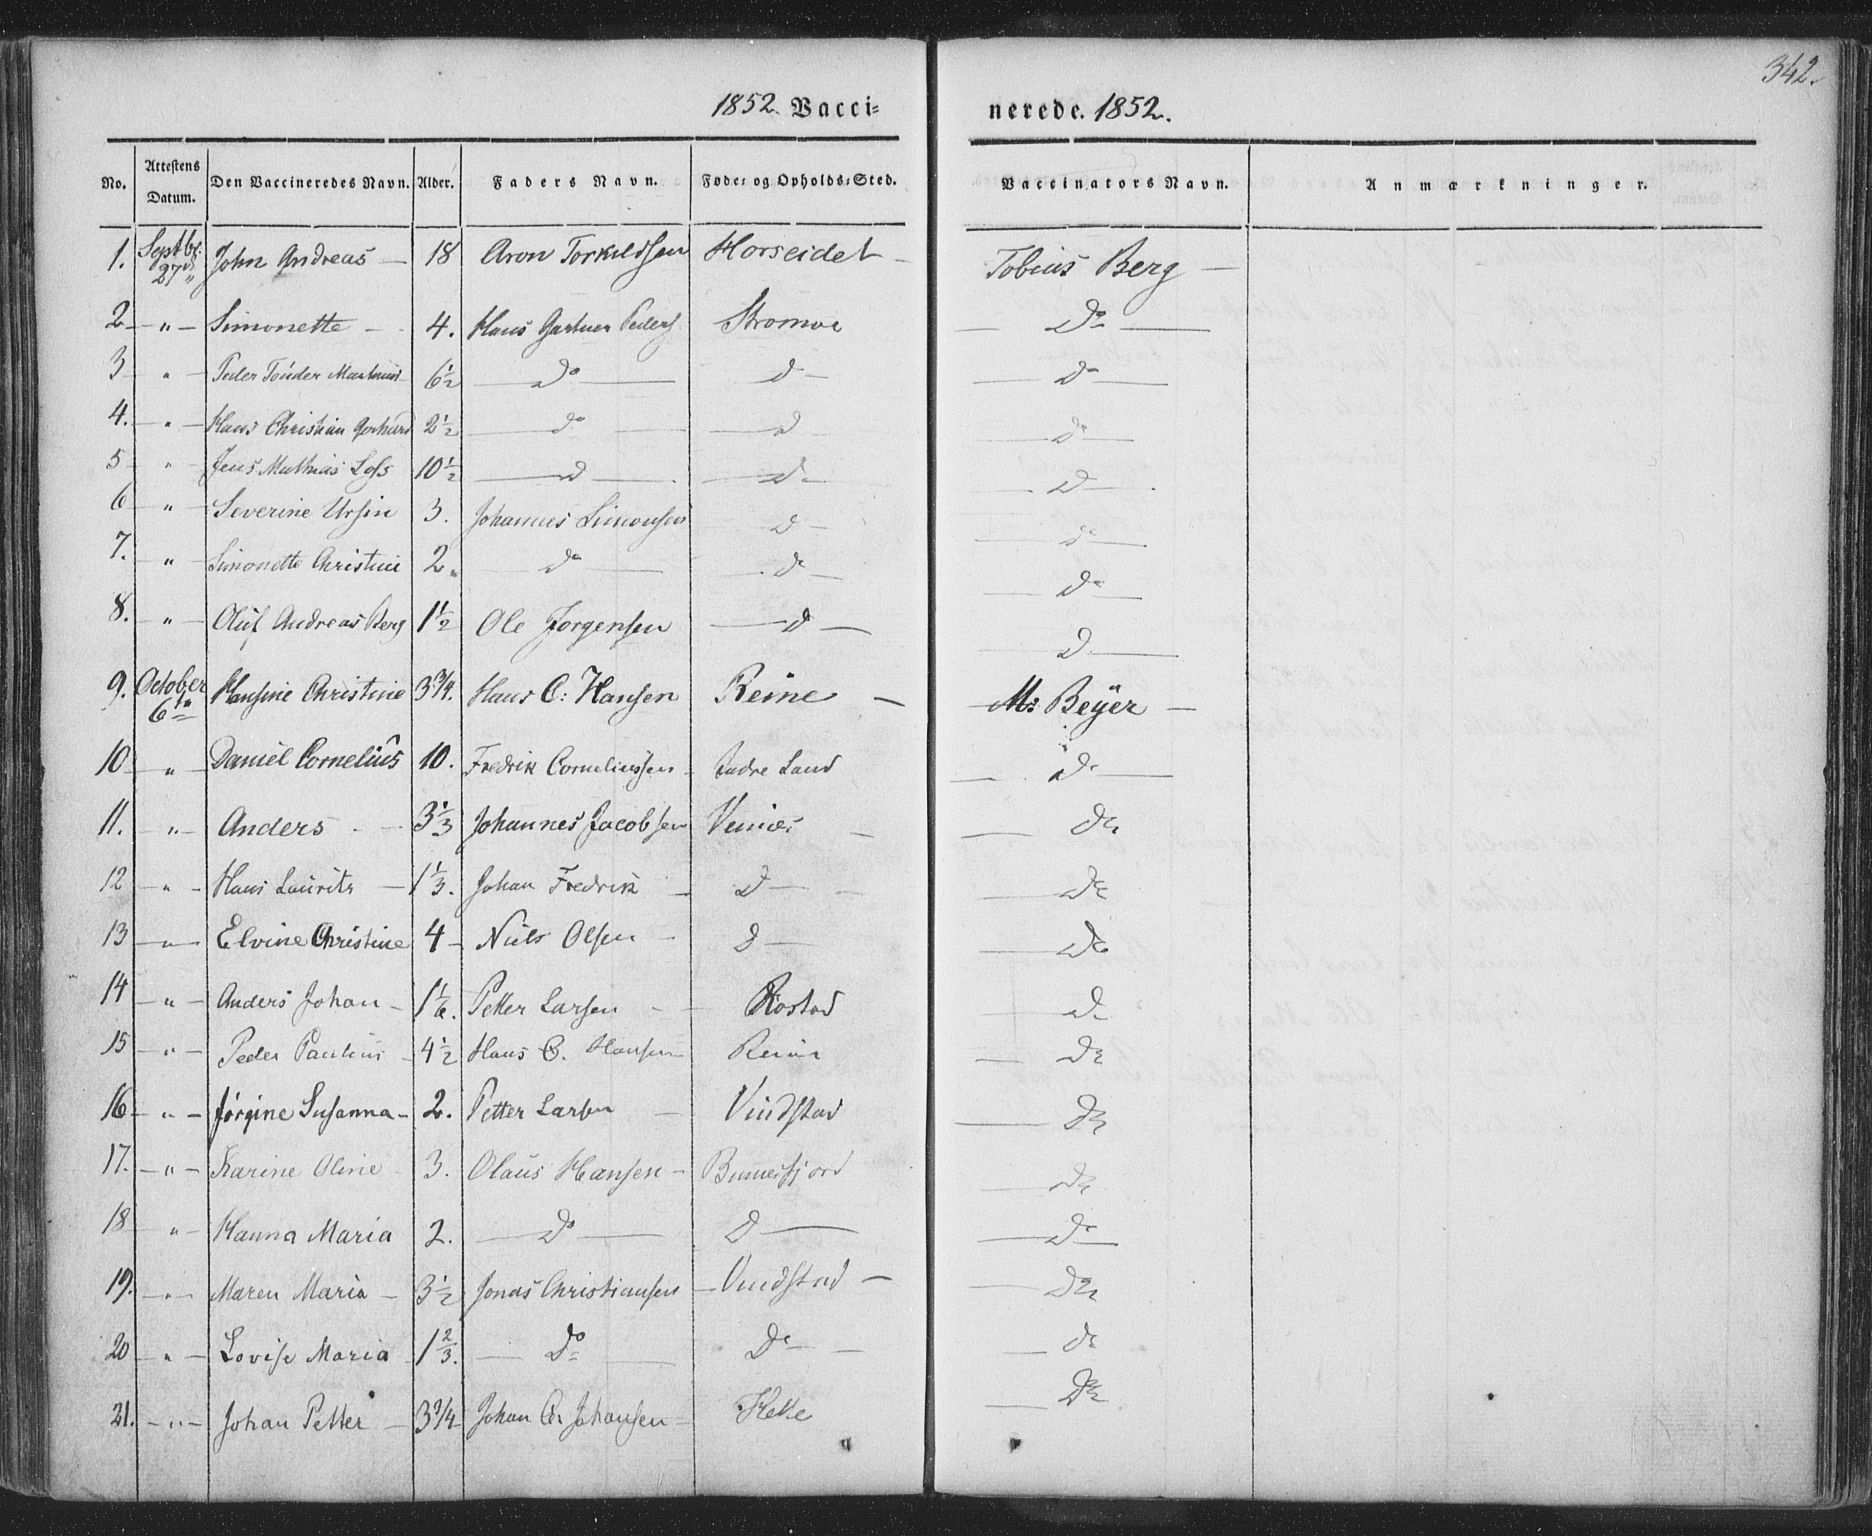 342.
1852. Vacci= nerede. 1852.
No. Attestens Datum. Den Vaccineredes Navn. Alder. Faders Navn. Føde= og Opholds=Sted. Vaccinators Navn. Anmærkninger.
1. Septbr. 27 John Andreas — 18 Aron Torkildsen Horseidet — Tobias Berg —
2 — " — Simonette — 4. Hans Gartner Peders Stromøe — Do —
3 — " — Peder Tønder Martinus 6 1/2 — Do — D — — Do —
4. — " — Hans Christian Gerhard 2 1/2 — do — d — — do —
5 — " — Jens Mathias Loss 10 1/2 — D — — D — — D —
6 — " — Severine Ursin 3. Johannes Simonsen D — — do —
7. — " — Simonette Christine 2 " — Do — — do — — Do —
8. — " — Oluf Andreas Berg 1 1/2 Ole Jørgensen — D — — D —
9. October 6te Hansine Christine 3 3/4. Hans C: Hansen Reine — M: Beyer —
10 — " Daniel Cornelius 10. Fredrik Corneliussen Andre Land — Do —
11. — " — Anders — 3 1/3 Johannes Jacobsen — Do
12 — " — Hans Lauritz — 1 1/3. Johan Fredrik — D — — Do
13 — " — Elvine Christine 4 — Niels Olsen — D — — Do
14 — " — Anders Johan — 1 1/6. Petter Larsen — Rostad — Do
15 — " — Peder Paulius — 4 1/2 Hans C. Hansen Reine — Do
16 — " — Jørgine Susanna — 2. Petter Larsen — Vindstad — Do
17. — " — Karine Oline 3. Olaus Hansen — Bunnesfjord — Do
18 — " — Hanna Maria 2. — Do — D — — Do —
19. — " — Maren Maria — 3 1/2 Jonas Christiansen — Vindstad — — Do
20 — " — Lovise Maria 1 2/3. — Do — Do — — do
21. — " — Johan Petter — 3 3/4 Johan Chr Johansen — — Do